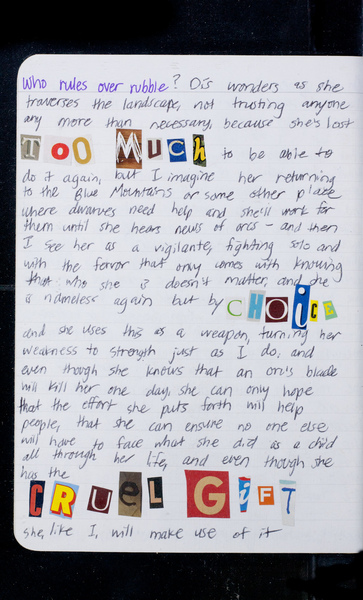 Who rules over rubble? Dis wonders as she
traverses the landscape, not trusting anyone
any more than necessary, because she's lost
TOO MUCh to be able to
do it again, but I imagine her returning
to the Blue Mountains or some other place
where dwarves need help and she'll work for
them until she hears news of orcs - and then
I see her as a vigilante, fighting solo and
with the fervor that only comes with knowing
that who she is doesn't matter, and she
is nameless again but by CHOiCE
and she uses this as a weapon, turning her
weakness to strength just as I do, and
even though she knows that an orc's blade
will kill her one day, she can only hope
that the effort she puts forth will help
people, that she can ensure no one else
will have to face what she did as a child
all through her life, and even though she
has the
CRUEL GiFT
she, like I, will make use of it